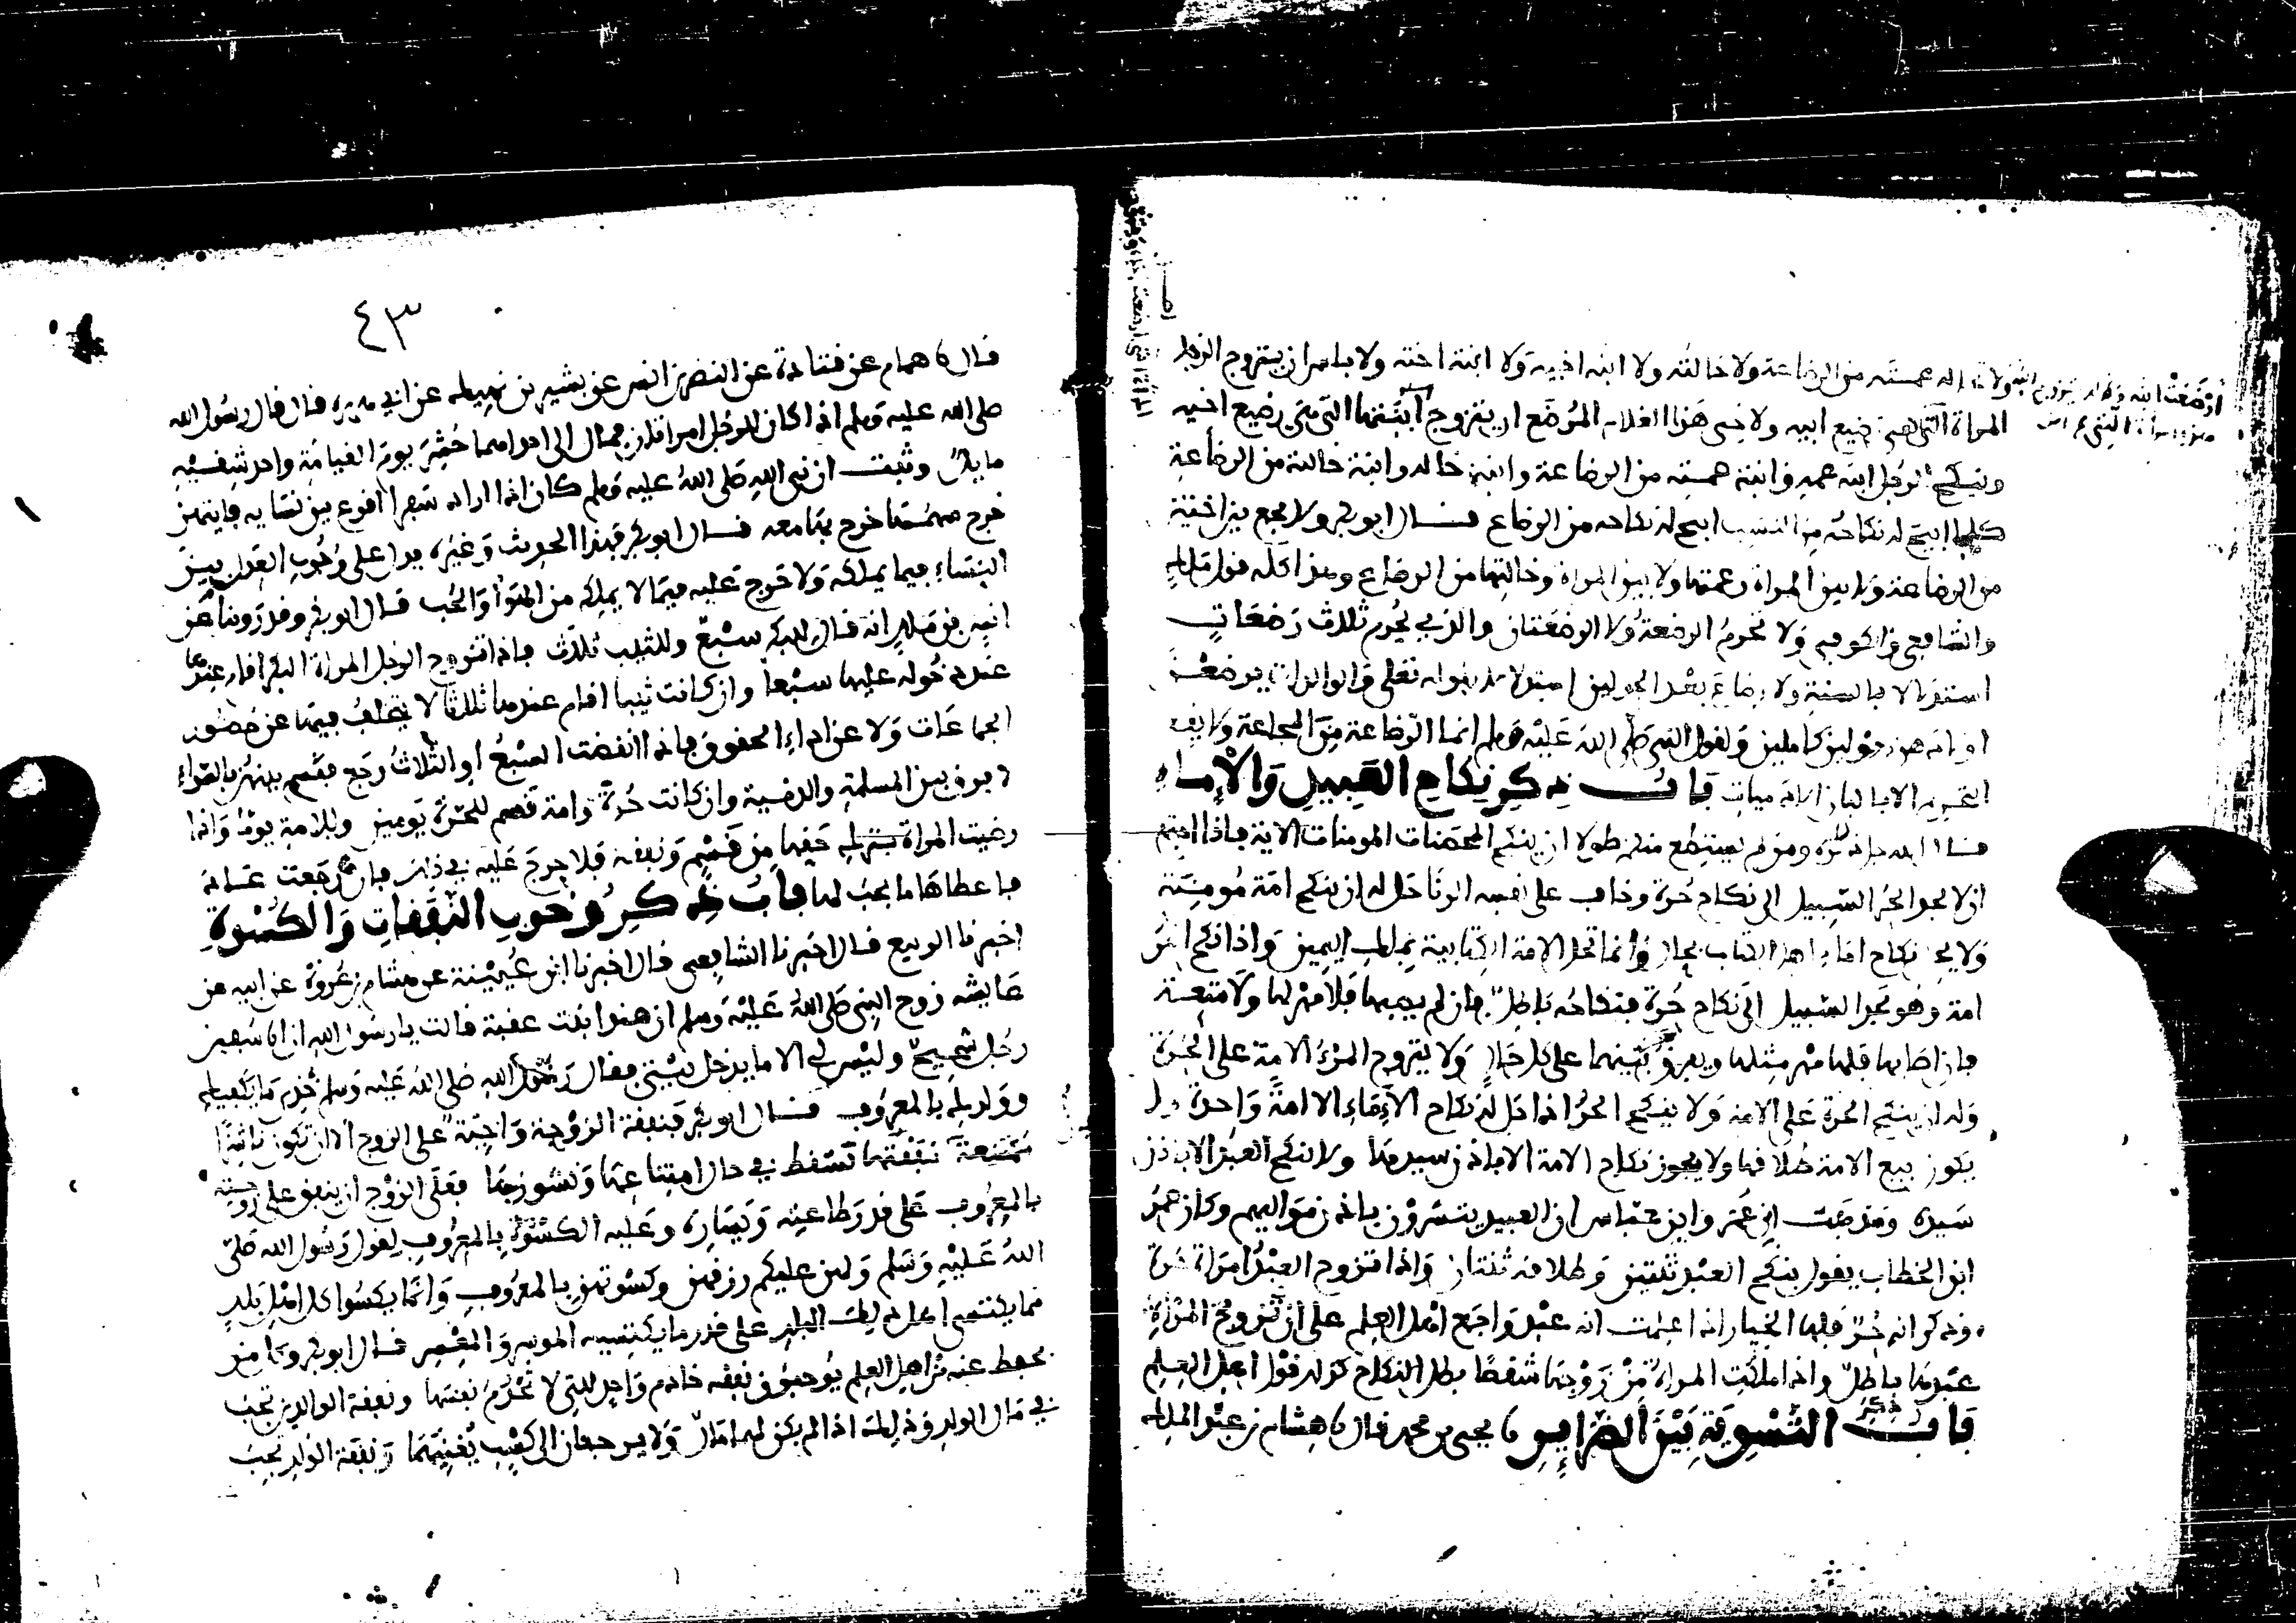 ولا عمته من الرضاعة ولا خالته ولا ابنة اخيه ولا ابنة اخته ولا باس ان يتزوج الرجل
المراة التي هي رضيع ابيه ولاخي هذا الغلام المرضع ان يتزوج ابنتها التي هي رضيع اخيه
وينكح الرجل ابنة عمه وابنة عمته من الرضاعة وابنة خاله وابنة خالته من الرضاعة
كلما ابيح له نكاحه من النسب ابيح له نكاحه من الرضاع قال ابو بكر ولا يجمع بين اختين
من الرضاعة ولا بين المراة وعمتها ولا بين المراة وخالتها من الرضاع وهذا كله قول مالك
والشافعي والكوفي ولا تحرم الرضعة ولا الرضعتان والذي يحرم ثلاث رضعات
استدلالا بالسنة ولا رضاع بعد الحولين استدلالا بقوله تعلى والوالدات يرضعن
اولادهن حولين كاملين ولقول النبي صلى الله عليه وسلم انما الرضاعة من المجاعة ولا يقع
التحريم الا بالبان الادميات باب ذكر نكاح العبيد والإماء
قال الله جل ذكره ومن لم يستطع منكم طولا ان ينكح المحصنات المومنات الاية فاذا اجتمع
ان لا يجد الحر السبيل الى نكاح حرة وخاف على نفسه الزنا حل له ان ينكح امة مومنة
ولا يجوز نكاح اماء اهل الكتاب بحال وانما تحل الامة الكتابية بملك اليمين واذا نكح الحر
امة وهو يجد السبيل الى نكاح حرة فنكاحه باطل فان لم يصبها فلا مهر لها ولا متعة
فان اصابها فلها مهر مثلها ويفرق بينهما على كل حال ولا يتزوج المرء الامة على الحرة
وله ان ينكح الحرة على الامة ولا ينكح الحر اذا حل له نكاح الإماء الا امة واحدة ولا
يكون بيع الامة طلاقها ولا يجوز نكاح الامة الا باذن سيدها ولا ينكح العبد الا باذن
سيده وقد ثبت ابن عمر وابن عباس ان العبيد يتسرون باذن مواليهم وكان عمر
ابن الخطاب يقول ينكح العبد ثنتين وطلاقه ثنتان واذا تزوج العبد امراة حرة
وذكر انه حر فلها الخيار اذا علمت انه عبد واجمع اهل العلم على ان تزويج المراة
عبدها باطل واذا ملكت المراة من زوجها شقصا بطل النكاح كذلك قول اهل العلم
باب ذكر التسوية بين الضراير نا يحيى بن محمد قال نا هشام بن عبد الملك
٤٣
قال نا همام عن قتادة عن النضر بن انس عن بشير بن نهيك عن ابي هريرة قال قال رسول الله
صلى الله عليه وسلم اذا كان للرجل امراتان فمال الى احداهما حشر يوم القيامة واحد شقيه
مايل وثبت ان نبي الله صلى الله عليه وسلم كان اذا اراد سفرا اقرع بين نسايه فايتهن
خرج سهمها خرج بها معه قال ابو بكر فهذا الحديث وغيره يدل على وجوب العدل بين
النساء فيما يملكه ولا حرج عليه فيما لا يملكه من الهوا والحب قال ابو بكر وقد روينا عن
انس بن مالك انه قال للبكر سبع وللثيب ثلاث فاذا تزوج الرجل المراة البكر اقام عندها
عند دخوله عليها سبعا وان كانت ثيبا اقام عندها ثلاثا لا يتخلف فيها عن حضور
الجماعات ولا عن اداء الحقوق فاذا انقضت السبع او الثلاث رجع فقسم بينهن بالسواء
لا يفرق بين المسلمة والذمية وان كانت حرة وامة قسم للحرة يومين وللامة يوما واذا
رضيت المراة بترك حقها من قسم ونفقة فلا حرج عليه في ذلك فان رجعت عادة
فاعطاها ما يجب لها باب ذكر وجوب النفقات والكسوة
اخبرنا الربيع قال اخبرنا الشافعي قال اخبرنا ابن عيينة عن هشام بن عروة عن ابيه عن
عايشة زوج النبي صلى الله عليه وسلم ان هندا بنت عتبة قالت يا رسول الله ان ابا سفين
رجل شحيح وليس لي الا ما يدخل بيتي فقال رسول الله صلى الله عليه وسلم خذي ما يكفيك
وولدك بالمعروف قال ابو بكر فنفقة الزوجة واجبة على الزوج الا ان تكون ناشزا
ممتنعة نفقتها تسقط في حال امتناعها ونشوزها فعلى الزوج ان ينفق على زوجته
بالمعروف على قدر طاقته ويساره وعليه الكسوة بالمعروف لقول رسول الله صلى
الله عليه وسلم ولهن عليكم رزقهن وكسوتهن بالمعروف وانما يكسوا كل اهل بلد
مما يكتسي اهل ذلك البلد على قدر ما يكتسيه الموسر والمعسر قال ابو بكر وكل من
يحفظ عنه من اهل العلم يوجبون نفقة خادم واحد للتي لا تخدم نفسها ونفقة الوالدين تجب
في مال الولد وذلك اذا لم يكن لهما مال ولا يرجعان الى كسب يغنيهما ونفقة الولد تجب